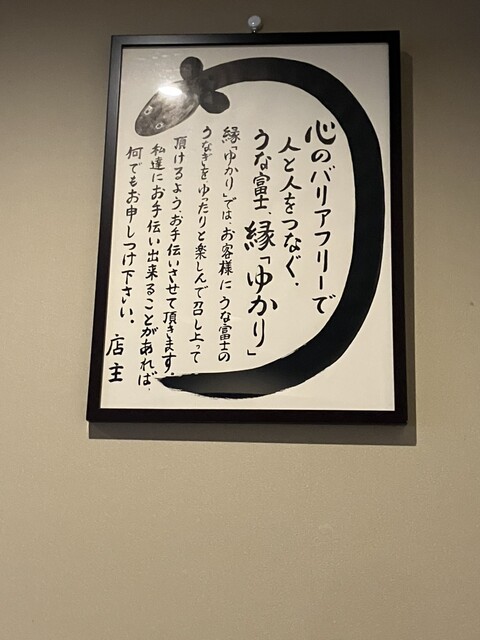 心のバリアフリーで
人と人をつなぐ、
うな富士、縁「ゆかり」
縁「ゆかり」では、お客様にうな富士の
うなぎをゆったりと楽しんで召し上って
頂けるよう、お手伝いさせて頂きます。
私達にお手伝い出来ることがあれば、
何でもお申しつけ下さい。
店主